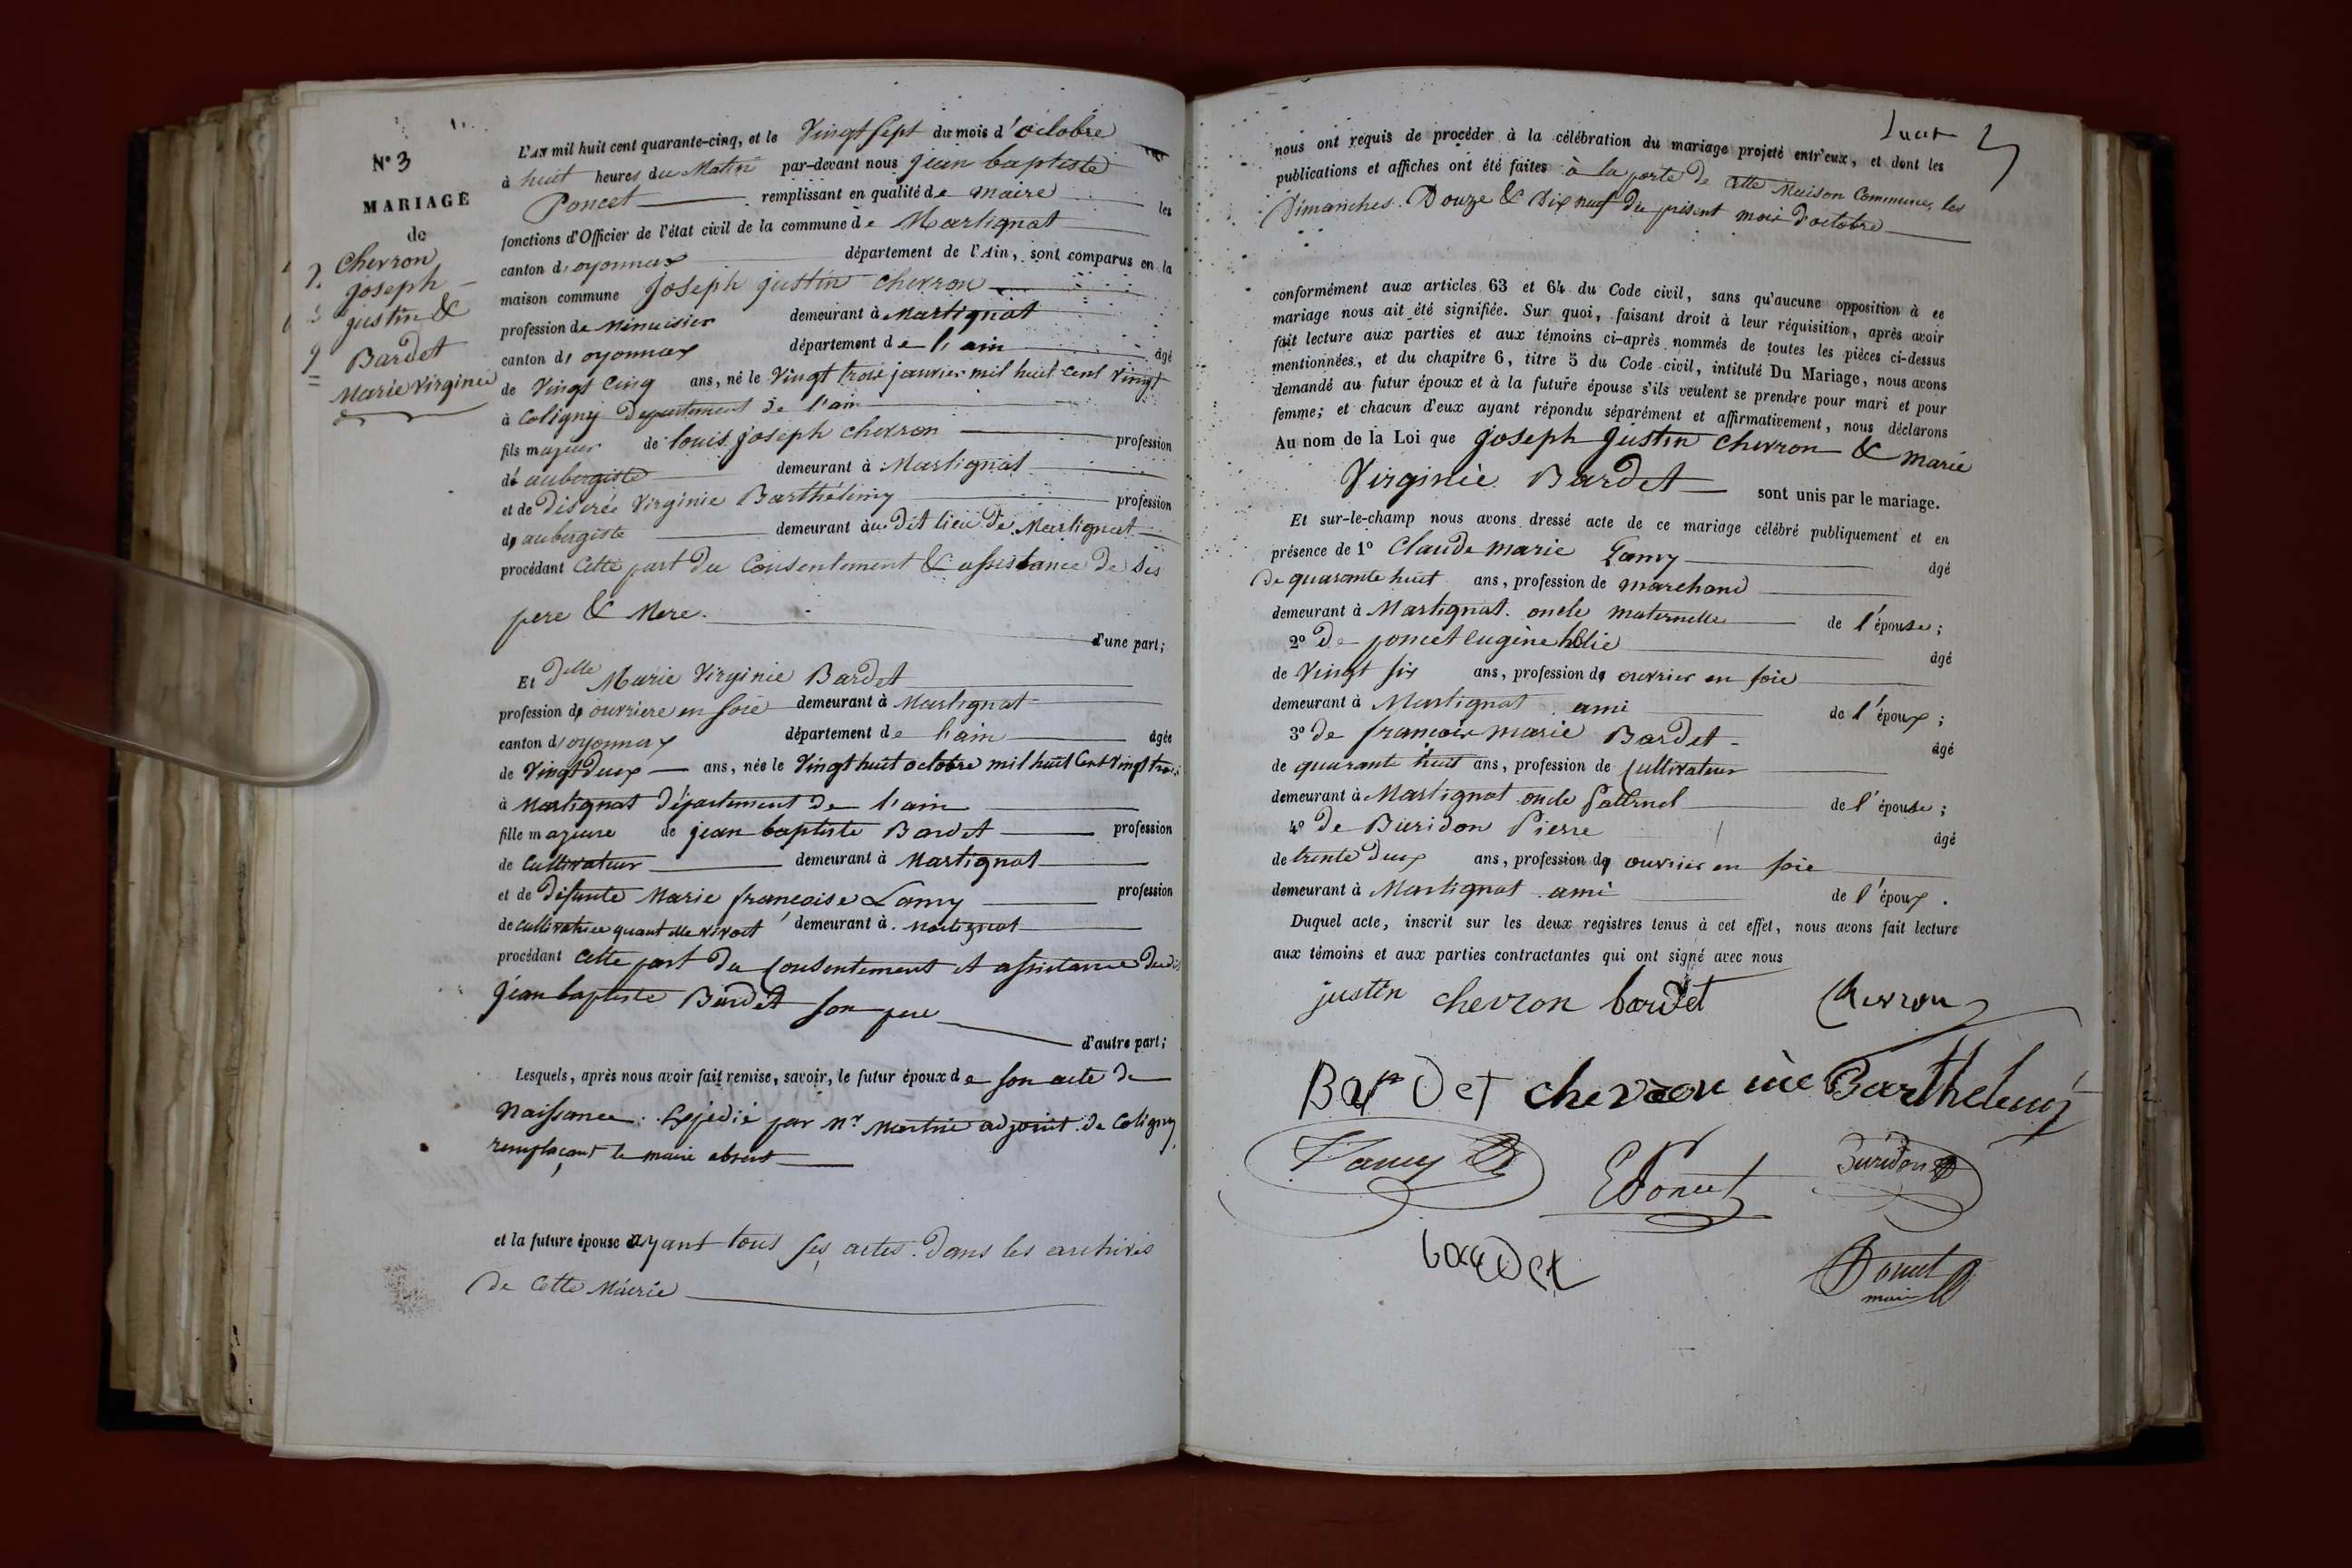 N° 3
MARIAGE
de
Chevron
joseph
justin &
Bardet
Marie Virginie
L'AN mil huit cent quarante-cinq, et le Vingt sept du mois d'octobre
à huit heures du Matin par-devant nous jean baptiste
Poncet remplissant en qualité de maire les
fonctions d'Officier de l'état civil de la commune de Martignat
canton d'oyonnax département de l'Ain, sont comparus en la
maison commune joseph justin chevron
profession de Menuisier demeurant à Martignat
canton d'oyonnax département de l'ain âgé
de Vingt Cinq ans, né le Vingt trois janvier mil huit cent vingt
à Coligny Departement de l'ain
fils majeur de louis joseph chevron profession
d'aubergiste demeurant à Martignat
et de Disirée Virginie Barthélimy profession
d'aubergiste demeurant au dit lieu de Martignat
procédant Cette part du Consentement & assistance de ses
pere & Mere.
d'une part;
Et delle Marie Virginie Bardet
profession d'ouvriere en soie demeurant à Martignat
canton d'oyonnax département de l'ain âgée
de Vingt Deux ans, née le Vingt huit octobre mil huit Cent Vingt trois
à Martignat Département de l'ain
fille majeure de jean baptiste Bardet profession
de Cultivateur demeurant à Martignat
et de Defunte Marie francoise Lamy profession
de cultivatrice quant elle vivait demeurant à Martignat
procédant cette part du Consentement et assistance dudit
jean baptiste Bardet son pere
d'autre part;
Lesquels, après nous avoir fait remise, savoir, le futur époux de son acte de
Naissance. Expédié par Mr Martin adjoint de Coligny,
remplaçant le maire absent
et la future épouse ayant tous ses actes dans les archives
de Cette Mairie
nous ont requis de procéder à la célébration du mariage projeté entr'eux, et dont les
publications et affiches ont été faites à la porte de cette Maison Commune, les
Dimanches Douze & Dix neuf du présent mois d'octobre
conformément aux articles 63 et 64 du Code civil, sans qu'aucune opposition à ce
mariage nous ait été signifiée. Sur quoi, faisant droit à leur réquisition, après avoir
fait lecture aux parties et aux témoins ci-après nommés de toutes les pièces ci-dessus
mentionnées, et du chapitre 6, titre 5 du Code civil, intitulé Du Mariage, nous avons
demandé au futur époux et à la future épouse s'ils veulent se prendre pour mari et pour
femme; et chacun d'eux ayant répondu séparément et affirmativement, nous déclarons
Au nom de la Loi que joseph justin chevron & marie
Virginie Bardet sont unis par le mariage.
Et sur-le-champ nous avons dressé acte de ce mariage célébré publiquement et en
présence de 1° Claude marie Lamy âgé
de quarante huit ans, profession de marchand
demeurant à Martignat oncle maternelle de l'épouse;
2° de poncet eugène hélie âgé
de Vingt six ans, profession d'ouvrier en soie
demeurant à Martignat ami de l'époux;
3° de françois marie Bardet âgé
de quarante huit ans, profession de Cultivateur
demeurant à Martignat oncle Paternel de l'épouse;
4° de Buridon Pierre âgé
de trente Deux ans, profession d'ouvrier en soie
demeurant à Martignat ami de l'époux.
Duquel acte, inscrit sur les deux registres tenus à cet effet, nous avons fait lecture
aux témoins et aux parties contractantes qui ont signé avec nous
justin chevron bardet Chevron
Bardet chevron née Barthelemy
Lamy EPoncet Buridon
bardet Poncet
maire